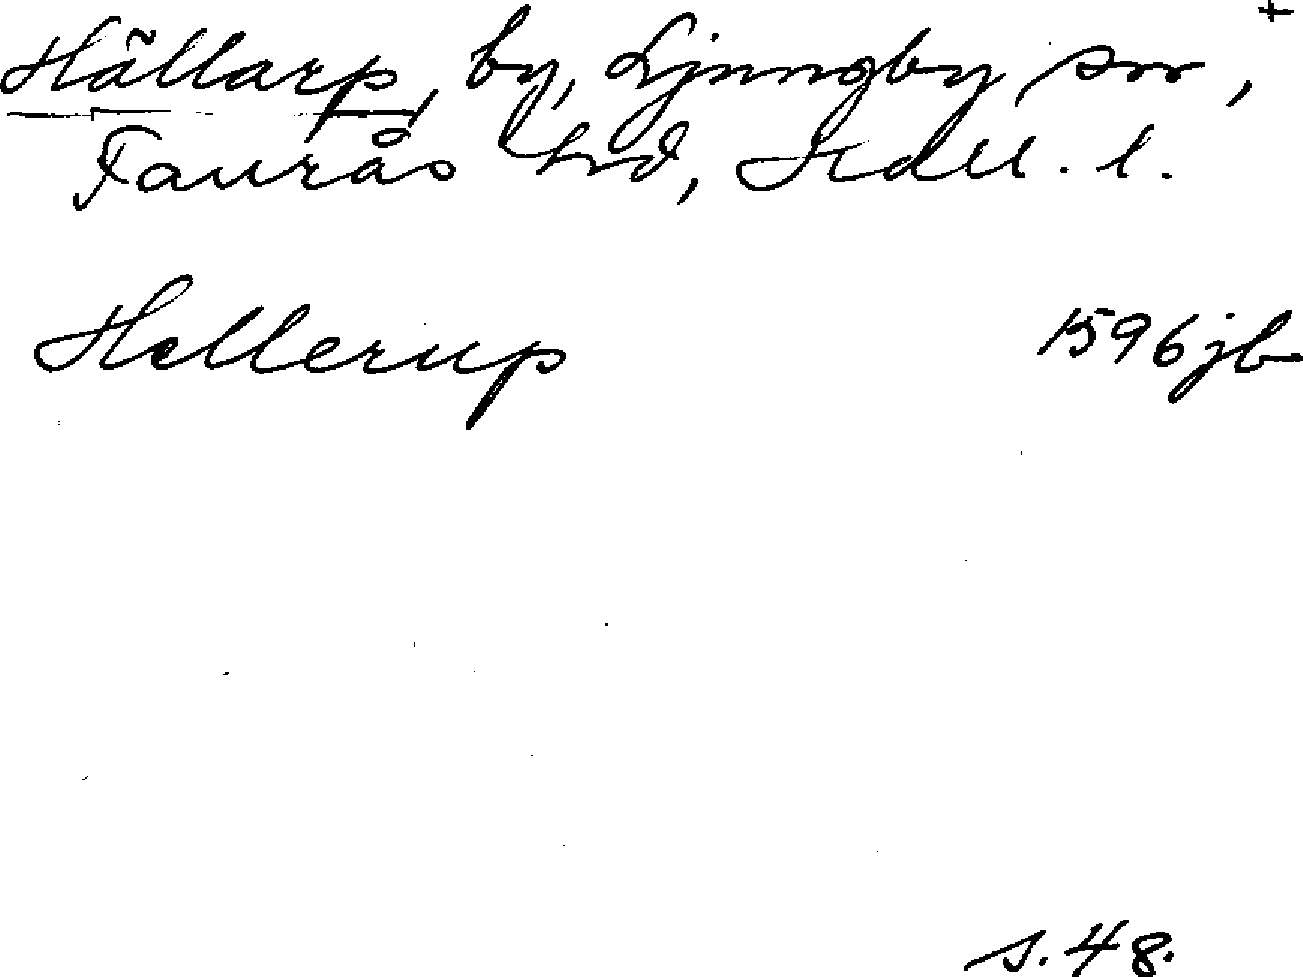 +
Hällarp, by, Ljungby sn,
Faurås hd, Hall. l.
Hellerup 1596 jb
s. 48.